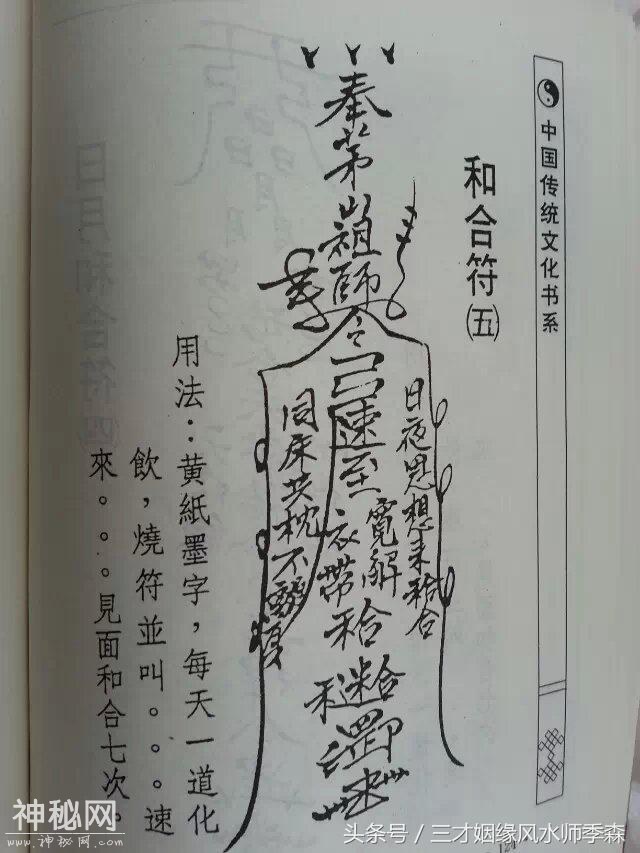 中国传统文化书系
和合符㈤
奉茅山祖師
令
速至
日夜思想来和合
寬解
衣帶
同床共枕不
用法：黄紙墨字，每天一道化
飲，燒符並叫。。。速
來。。。見面和合七次。
神秘网
www.shen-mi.com
头条号／三才姻缘风水师季森